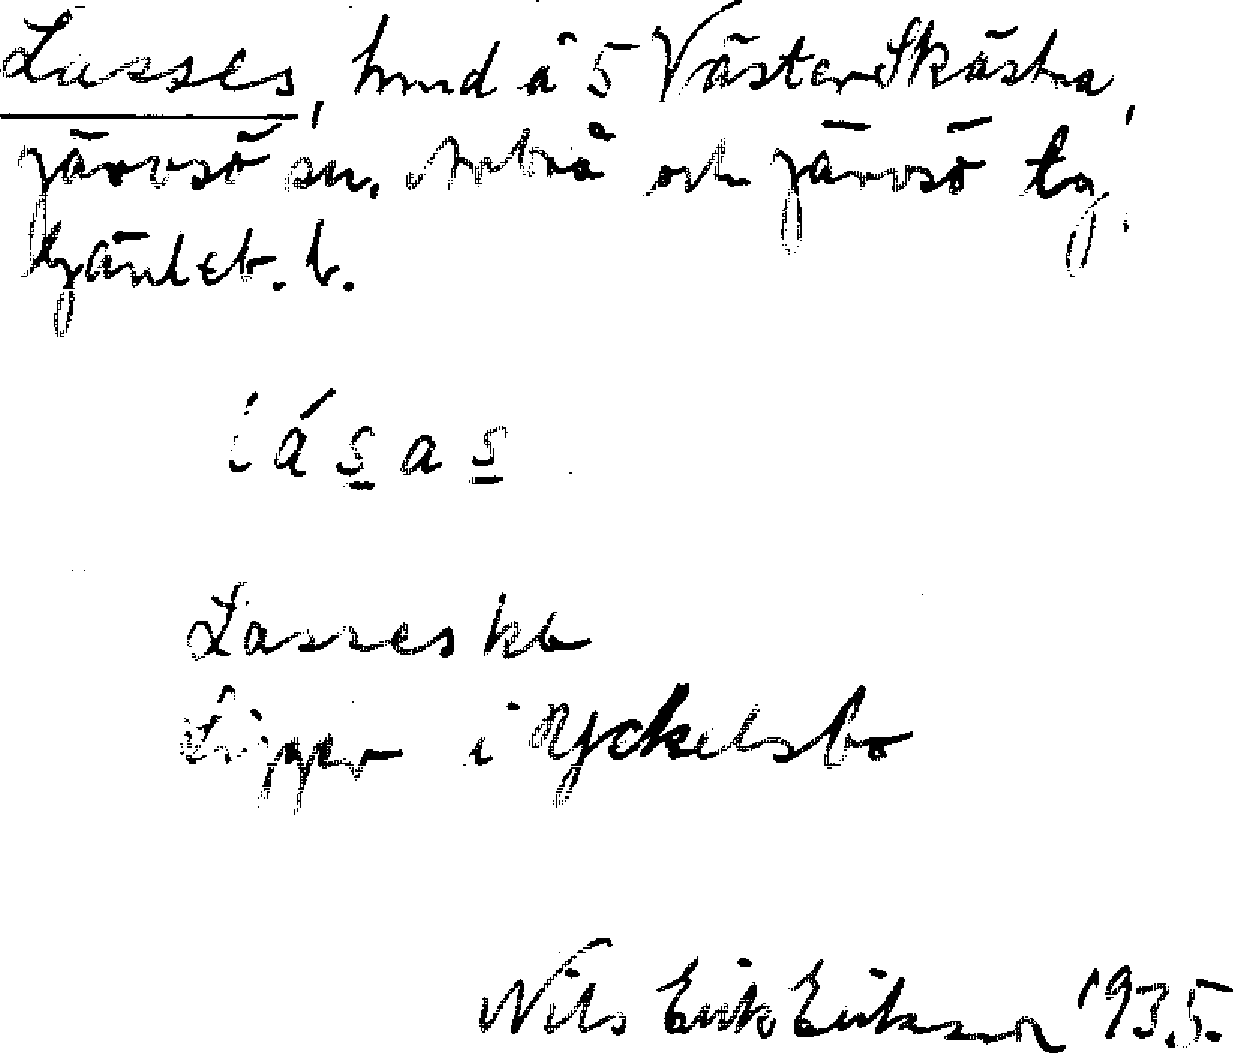 Lasses, hmd å 5 Väster Skästra,
Järvsö sn. Arbrå och Järvsö tg.
Gävleb. l.
lásas
Lasses kb
Ligger i Nyckelsbo
Nils Erik Eriksson 1935.